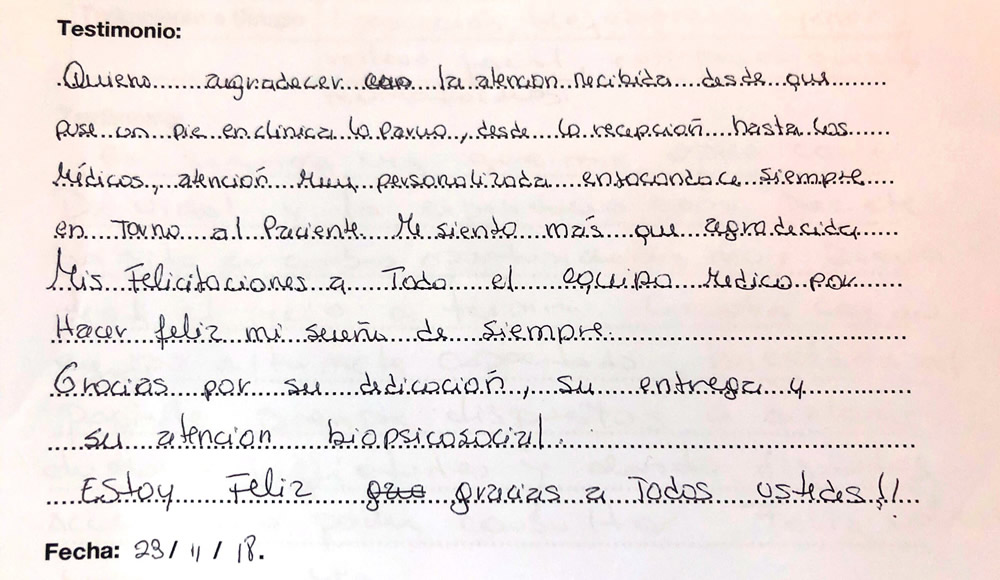 Testimonio:
Quiero agradecer la atencion recibida desde que
puse un pie en clinica lo Parvo, desde la recepción hasta los
Médicos, atención muy personalizada enfocandoce siempre
en Torno al Paciente Me siento más que agradecida
Mis Felicitaciones a Todo el equipo Médico por
Hacer feliz mi sueño de siempre.
Gracias por su dedicación, su entrega y
su atencion biopsicosocial.
Estoy Feliz gracias a Todos ustedes!!
Fecha: 29/11/18.